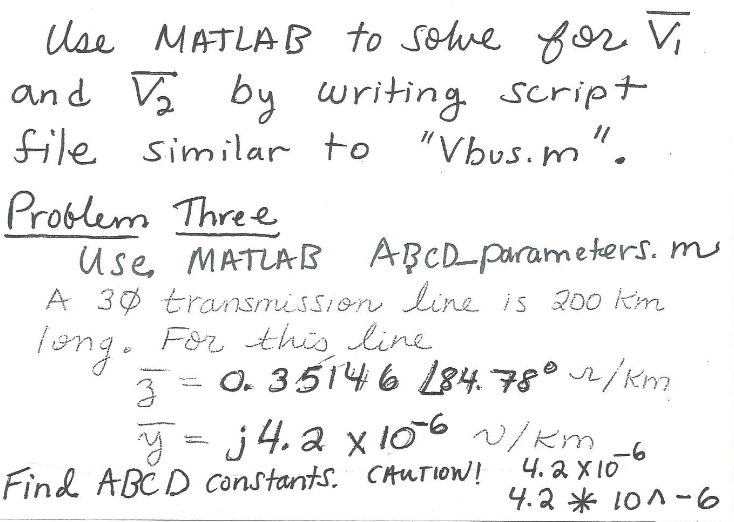 Use MATLAB to solve for V̅₁
and V̅₂ by writing script
file similar to "Vbus.m".
Problem Three
Use MATLAB ABCD_parameters.m
A 3Ø transmission line is 200 Km
long. For this line
z̅ = 0.35146 ∠84.78° Ω/Km
y̅ = j4.2 x 10⁻⁶ ℧/Km
Find ABCD constants. CAUTION! 4.2 X10⁻⁶
4.2 * 10^-6